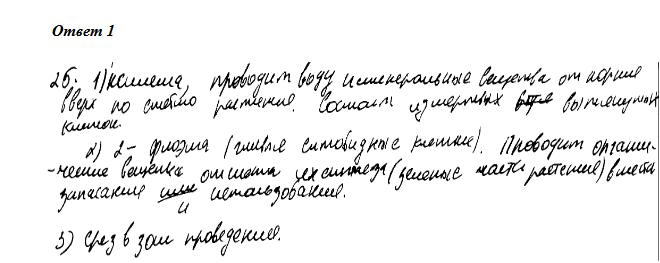 Ответ 1
25. 1) ксилема, проводит воду и минеральные вещества от корня
вверх по стеблю растения. Состоит из мертвых вытянутых
клеток.
2) 2 - флоэма (живые ситовидные клетки). Проводит органи-
-ческие вещества от места их синтеза (зеленые части растения) в места
запасания и использования.
3) срез в зоне проведения.